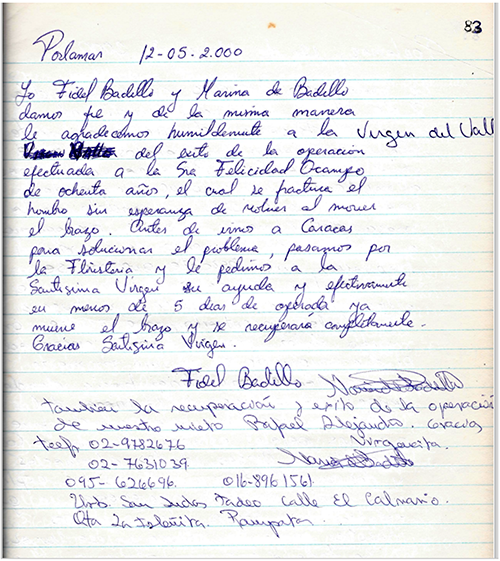 83
Porlamar 12-05-2.000
Yo Fidel Badillo y Marina de Badillo
damos fe y de la misma manera
le agradecemos humildemente a la Virgen del Vall
del exito de la operación
efectuada a la Sra Felicidad Ocampo
de ochenta años, el cual se fractura el
hombro sin esperanza de volver al mover
el brazo. Antes de irnos a Caracas
para solucionar el problema, pasamos por
la Floristeria y le pedimos a la
Santisima Virgen su ayuda y efectivamente
en menos de 5 dias de operada ya
mueve el brazo y se recuperará completamente.
Gracias Santisima Virgen.
Fidel Badillo
tambien la recuperación y exito de la operación
de nuestro nieto Rafael Alejandro. Gracias
Virgencita.
telf. 02-9782676
02-7631039
095-626696. 016-8961561
Urb. San Judas Tadeo Calle El Calvario.
Qta La Isleñita. Pampatar.